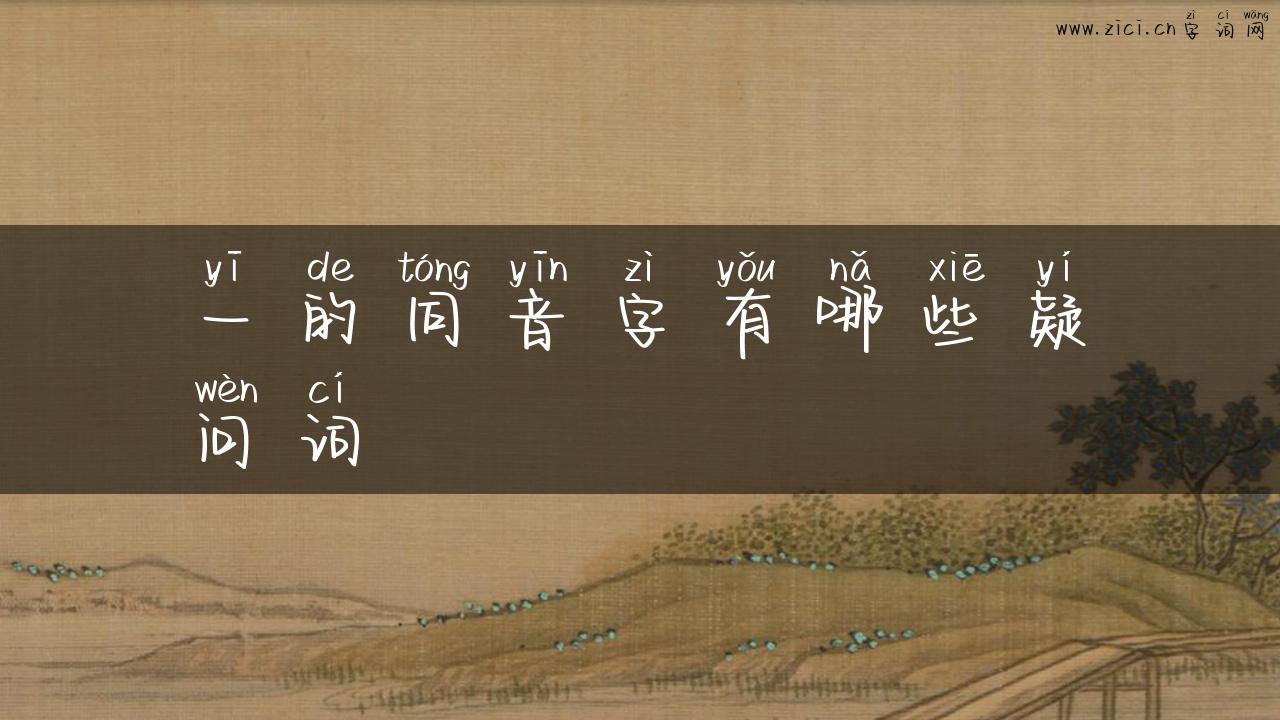 zì cí wǎng
www.zici.cn字词网
yī de tóng yīn zì yǒu nǎ xiē yí
一的同音字有哪些疑
wèn cí
问词